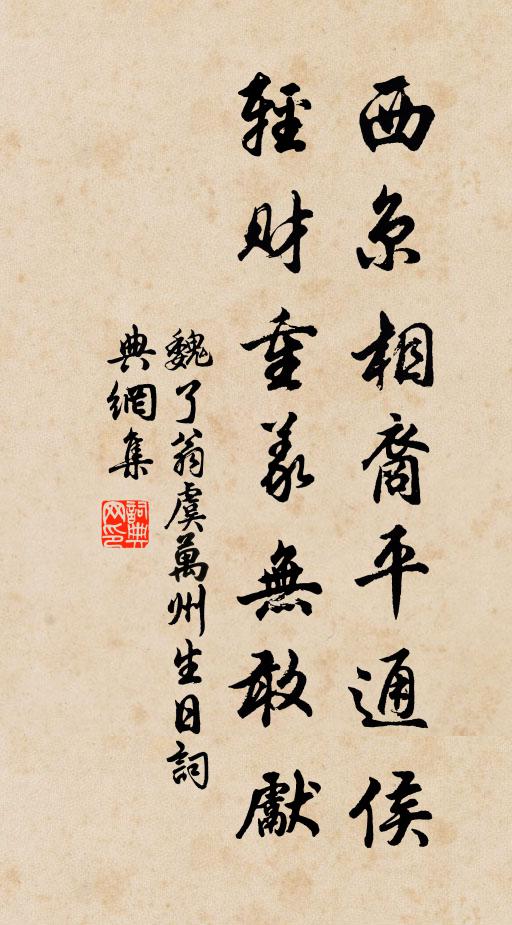 西京相裔平通侯
輕財重義無敢獻
魏了翁虞萬州生日詞
典網集
詞典網印